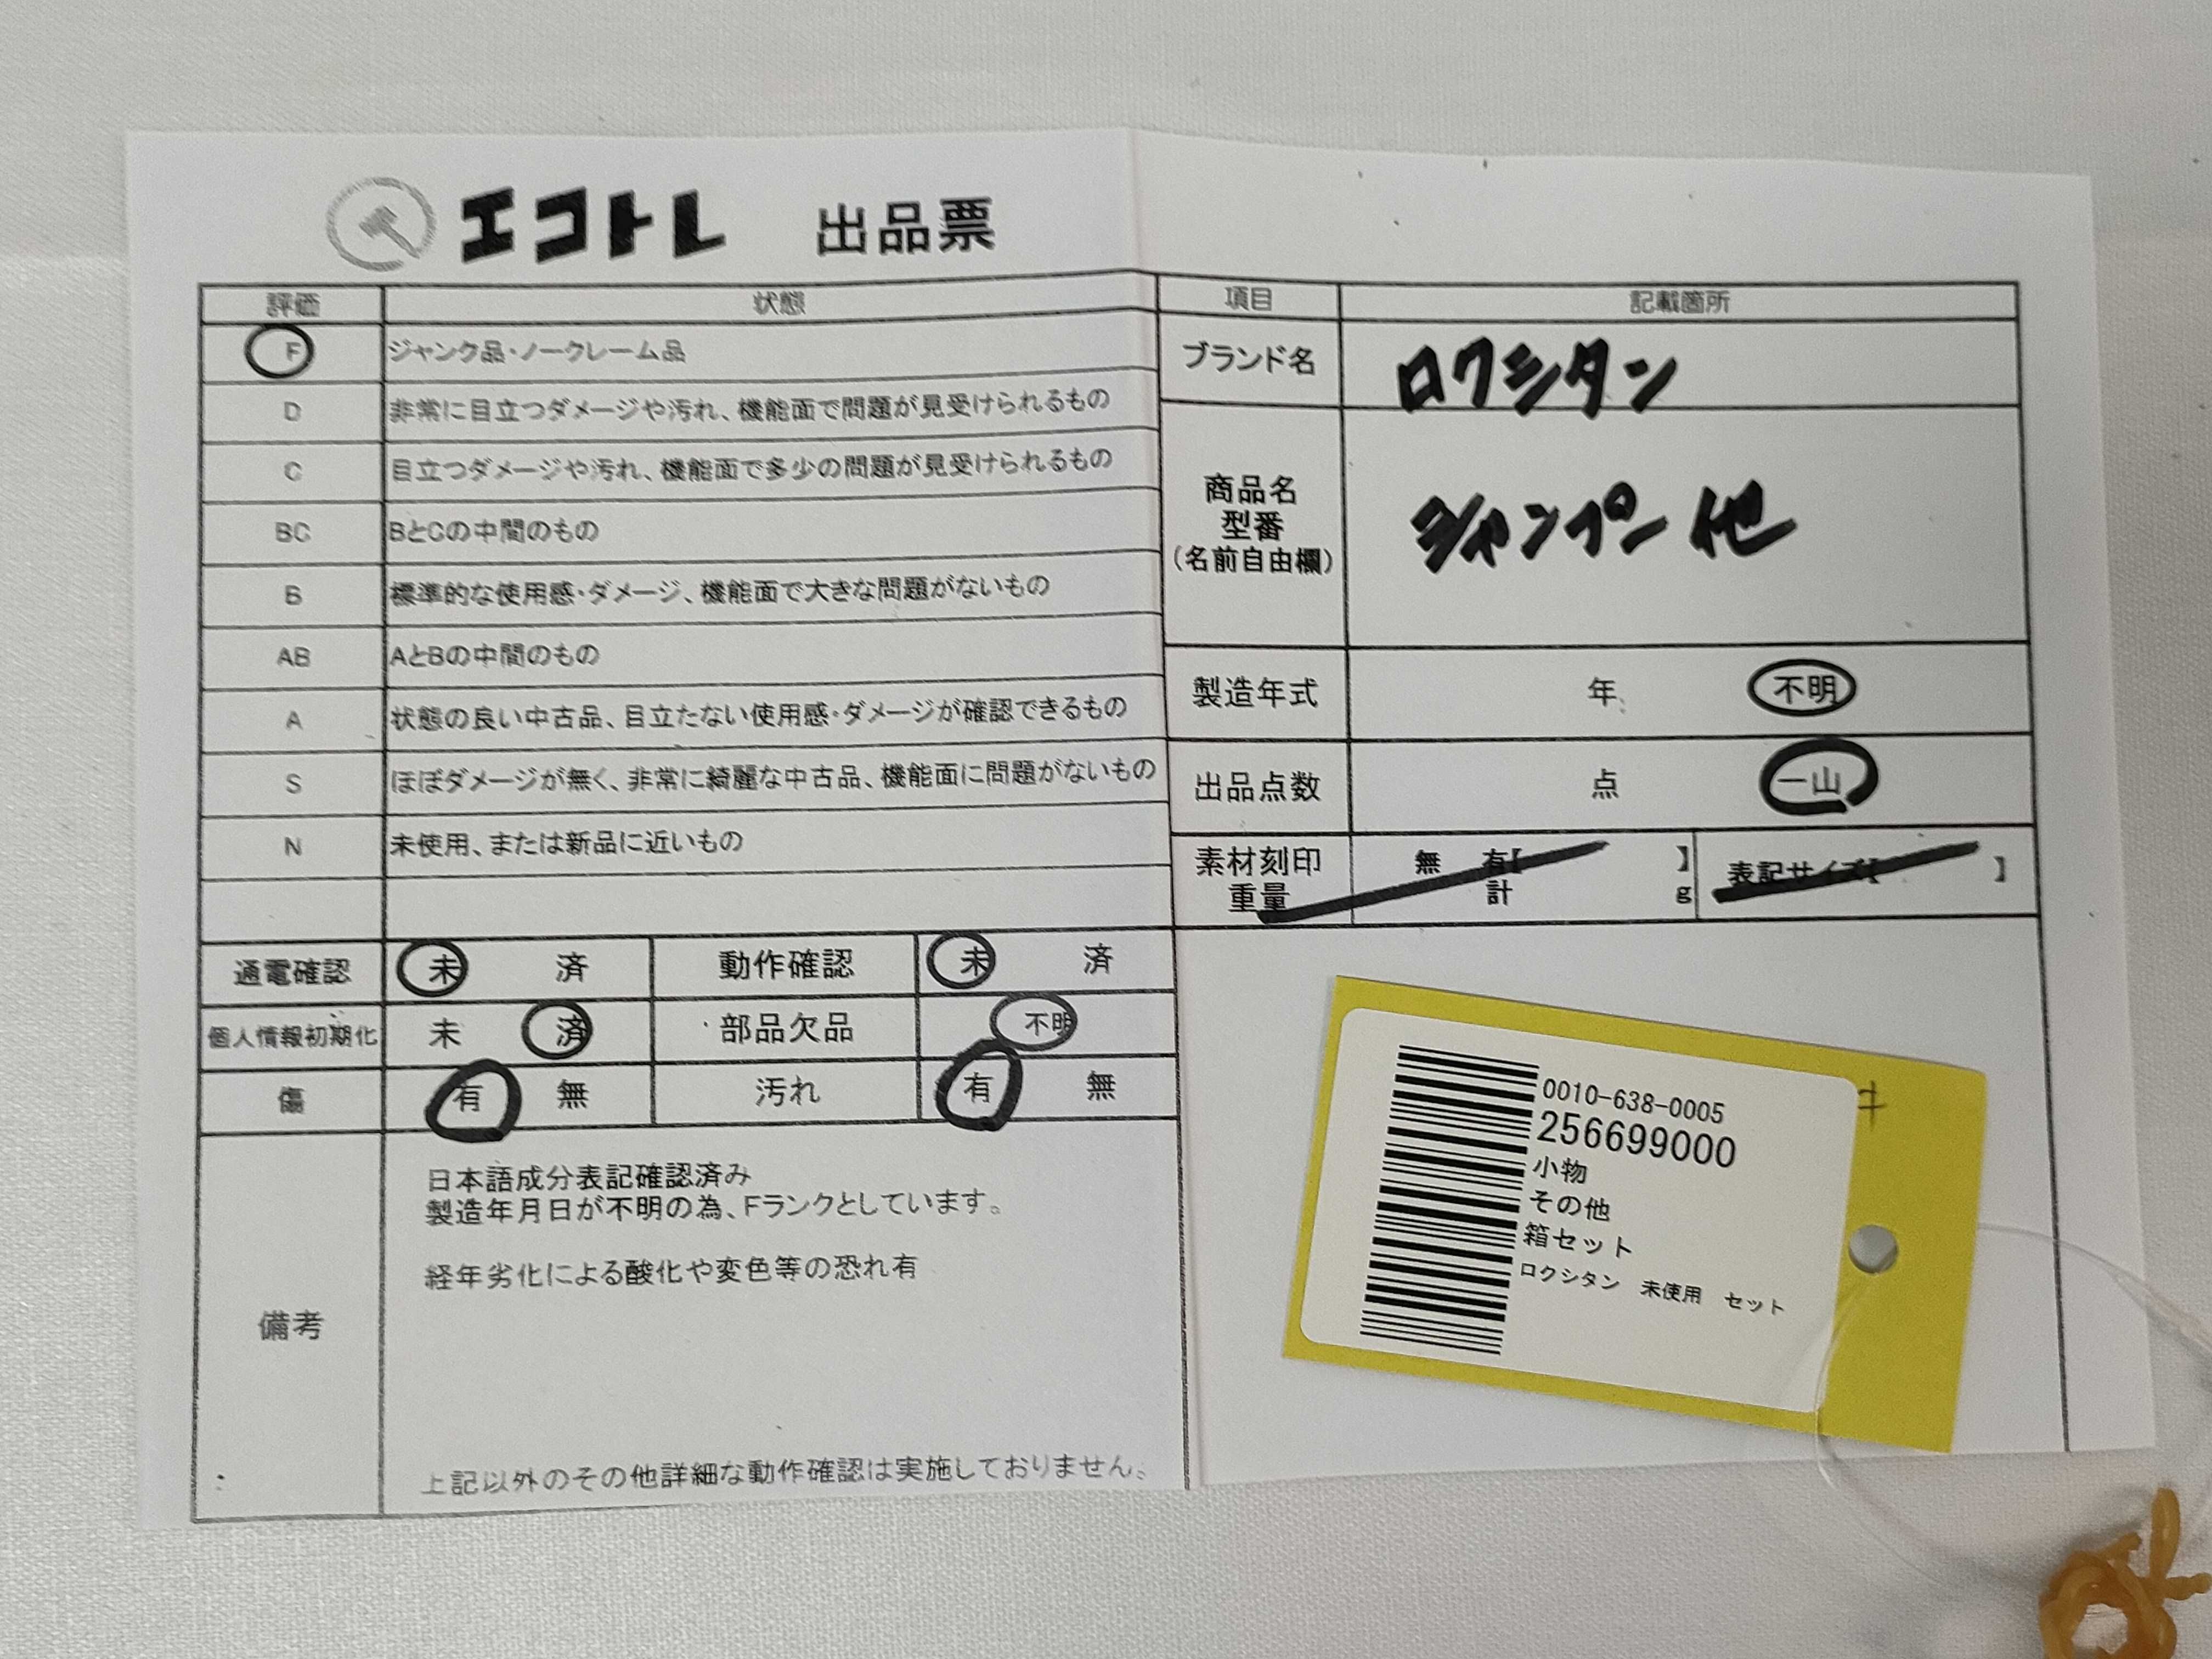 エコトレ 出品票
評価 状態
F ジャンク品・ノークレーム品
D 非常に目立つダメージや汚れ、機能面で問題が見受けられるもの
C 目立つダメージや汚れ、機能面で多少の問題が見受けられるもの
BC BとCの中間のもの
B 標準的な使用感・ダメージ、機能面で大きな問題がないもの
AB AとBの中間のもの
A 状態の良い中古品、目立たない使用感・ダメージが確認できるもの
S ほぼダメージが無く、非常に綺麗な中古品、機能面に問題がないもの
N 未使用、または新品に近いもの
通電確認 未 済 動作確認 未 済
個人情報初期化 未 済 部品欠品 不明
傷 有 無 汚れ 有 無
備考
日本語成分表記確認済み
製造年月日が不明の為、Fランクとしています。
経年劣化による酸化や変色等の恐れ有
上記以外のその他詳細な動作確認は実施しておりません。
項目 記載箇所
ブランド名 ロクシタン
商品名
型番
(名前自由欄)
シャンプー 他
製造年式 年 不明
出品点数 点 一山
素材刻印 無 有【 】
重量 計 g
表記サイズ【 】
0010-638-0005
256699000
小物
その他
箱セット
ロクシタン 未使用 セット